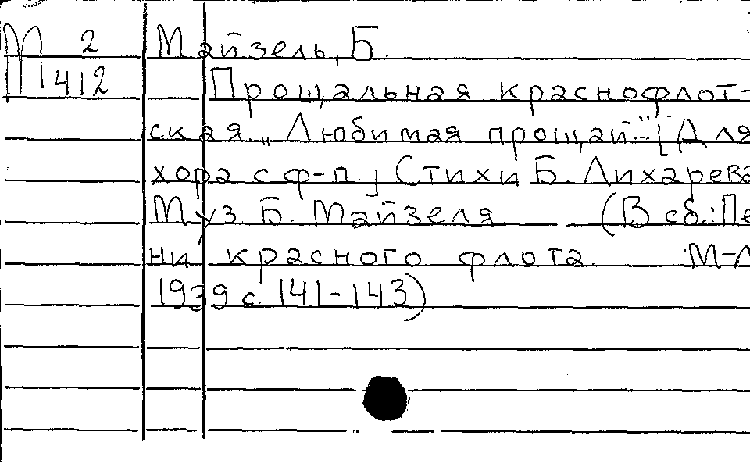 М 2 Майзель, Б.
М412 Прощальная краснофлот-
ская. „Любимая прощай-" [Для
хора с ф-п] Стихи Б. Лихарева
Муз. Б. Майзеля (В сб.: Пе
ни красного флота. М-Л
1939 с. 141-143)